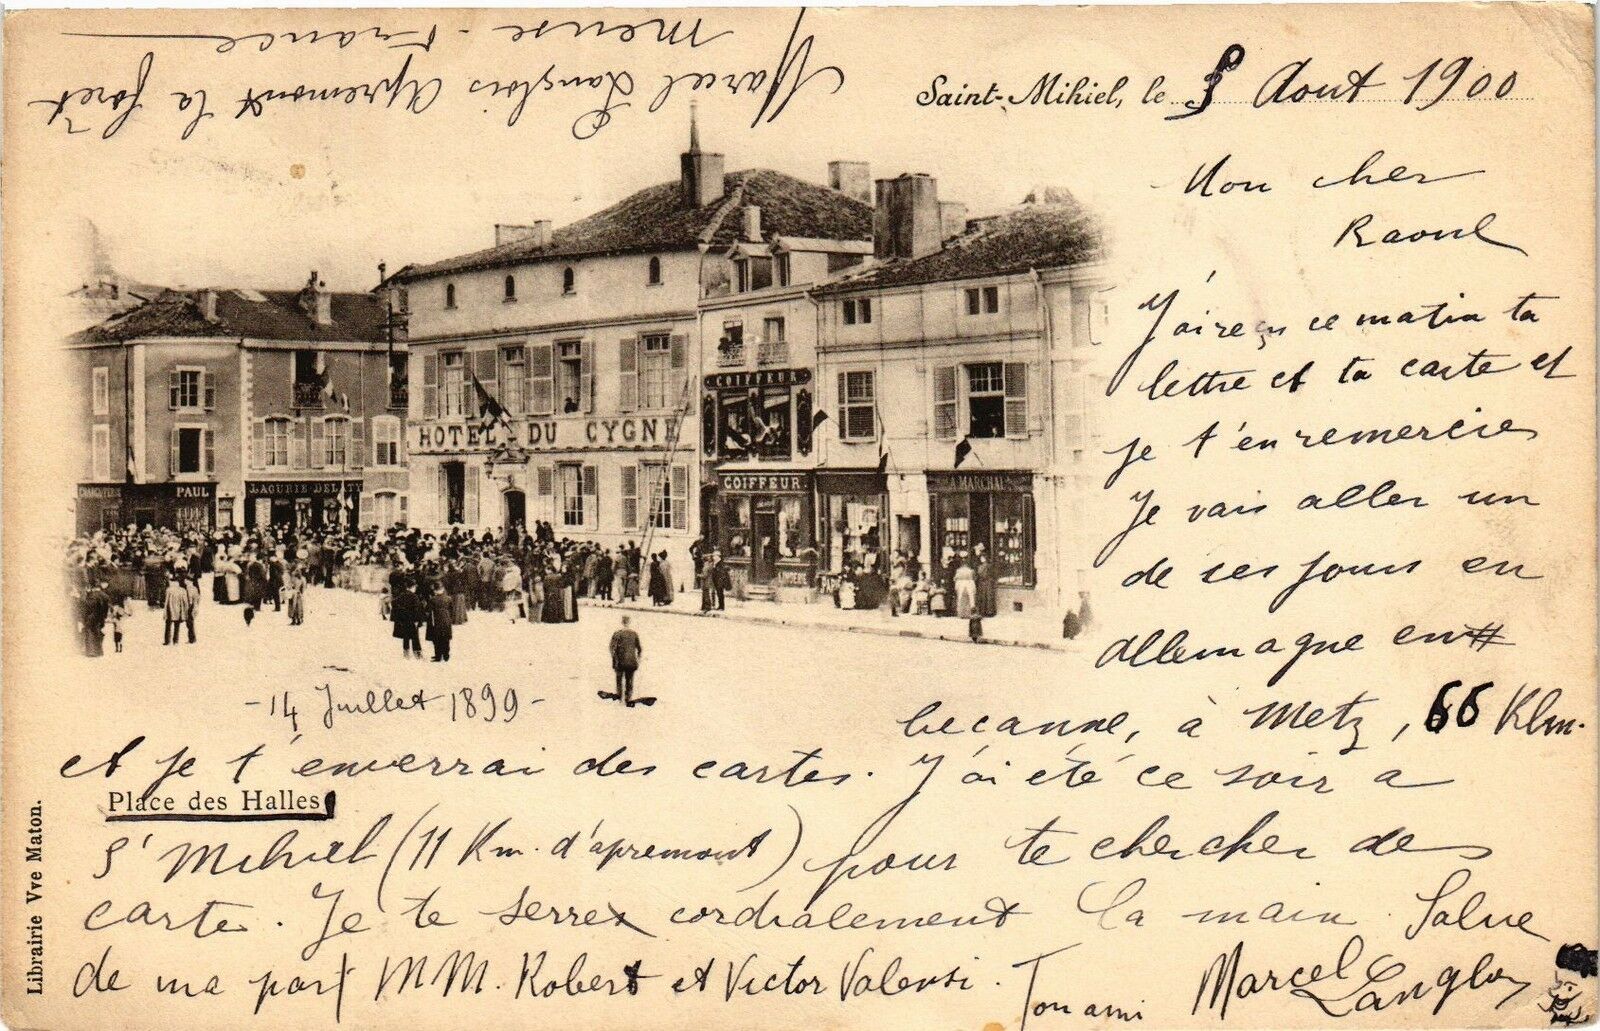 Marcel Langlois Apremont la forêt
Meuse - France
Saint-Mihiel, le 5 Aout 1900
Mon cher
Raoul
J'ai reçu ce matin ta
lettre et ta carte et
je t'en remercie
Je vais aller un
de ces jours en
Allemagne en
becanne, à Metz, 66 Klm.
et je t'enverrai des cartes. J'ai été ce soir a
St Mihiel (11 Km. d'apremont) pour te chercher des
cartes. Je te serre cordialement la main. Salue
de ma part MM. Robert et Victor Valensi.
Ton ami Marcel Langlois
HOTEL DU CYGNE
COIFFEUR
COIFFEUR.
PAUL
LACURIE-DELATY
- 14 Juillet 1899 -
Place des Halles
Librairie Vve Maton.